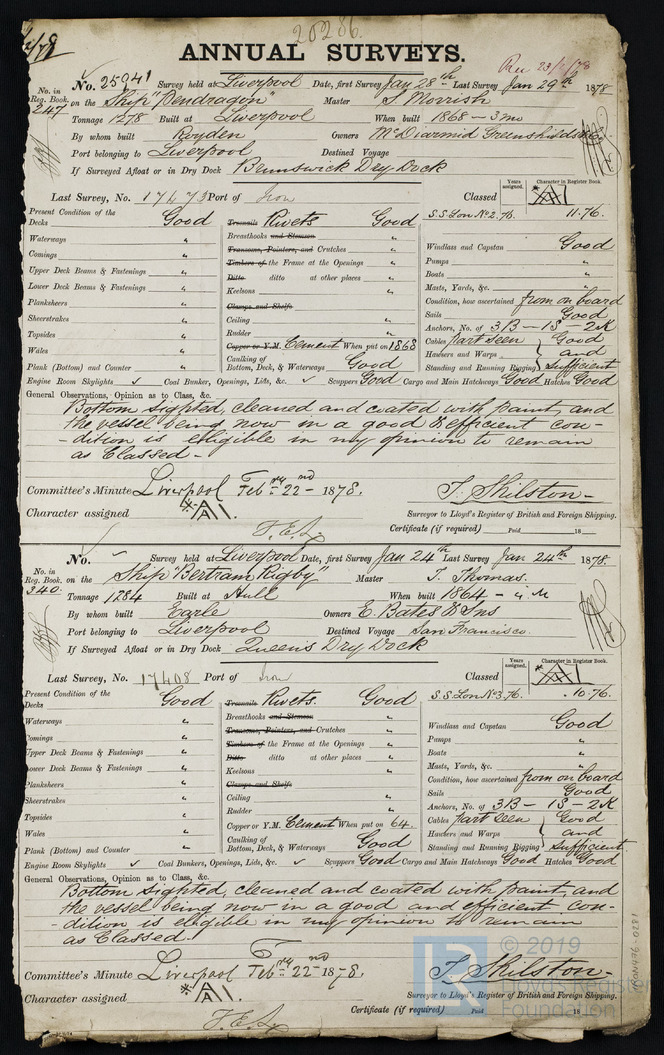 20286.
ANNUAL SURVEYS.
Rec 23/2/78
No. 25941 Survey held at Liverpool Date, first Survey Jan 28th Last Survey Jan 29th 1878
No. in Reg. Book. 247 on the Ship "Pendragon" Master S. Morrish
Tonnage 1278 Built at Liverpool When built 1868 - 3 mo
By whom built Royden Owners McDiarmid Greenshields & Co
Port belonging to Liverpool Destined Voyage
If Surveyed Afloat or in Dry Dock Brunswick Dry Dock
Last Survey, No. 17473 Port of Iron Classed Years assigned. Character in Register Book. A1
Present Condition of the
Decks Good Treenails Rivets Good S.S. Lon No 2. 76. 11.76.
Waterways " Breasthooks and Stemson "
Comings " Transoms, Pointers, and Crutches " Windlass and Capstan Good
Upper Deck Beams & Fastenings " Timbers of the Frame at the Openings " Pumps "
Lower Deck Beams & Fastenings " Ditto ditto at other places " Boats "
Planksheers " Keelsons " Masts, Yards, &c. "
Sheerstrakes " Clamps and Shelfs Condition, how ascertained from on board
Topsides " Ceiling " Sails Good
Wales " Rudder " Anchors, No. of 3B - 1S - 2K
Plank (Bottom) and Counter " Copper or Y.M. Cement When put on 1868 Cables Part Seen Good
Caulking of Bottom, Deck, & Waterways Good Hawsers and Warps and
Standing and Running Rigging Sufficient
Engine Room Skylights ✓ Coal Bunker, Openings, Lids, &c. ✓ Scuppers Good Cargo and Main Hatchways Good Hatches Good
General Observations, Opinion as to Class, &c.
Bottom sighted, cleaned and coated with paint, and
the vessel being now in a good & efficient con-
-dition is eligible in my opinion to remain
as Classed -
Committee's Minute Liverpool Feb ry 22nd 1878. T. Skilston
Character assigned A1. Surveyor to Lloyd's Register of British and Foreign Shipping.
Certificate (if required) Paid 18
No. Survey held at Liverpool Date, first Survey Jan 24th Last Survey Jan 24th 1878.
No. in Reg. Book. 340. on the Ship "Bertram Rigby" Master T. Thomas.
Tonnage 1284 Built at Hull When built 1864 - 4 M
By whom built Earle Owners E. Bates & Sns
Port belonging to Liverpool Destined Voyage San Francisco.
If Surveyed Afloat or in Dry Dock Queens Dry Dock
Last Survey, No. 17408 Port of Iron Classed Years assigned. Character in Register Book. A1
Present Condition of the
Decks Good Treenails Rivets. Good S.S. Lon No 3. 76. 10.76.
Waterways " Breasthooks and Stemson "
Comings " Transoms, Pointers, and Crutches " Windlass and Capstan Good
Upper Deck Beams & Fastenings " Timbers of the Frame at the Openings " Pumps "
Lower Deck Beams & Fastenings " Ditto ditto at other places " Boats "
Planksheers " Keelsons " Masts, Yards, &c. "
Sheerstrakes " Clamps and Shelfs Condition, how ascertained from on board
Topsides " Ceiling " Sails Good
Wales " Rudder " Anchors, No. of 3B - 1S - 2K
Plank (Bottom) and Counter " Copper or Y.M. Cement When put on 64. Cables Part Seen Good
Caulking of Bottom, Deck, & Waterways Good Hawsers and Warps and
Standing and Running Rigging Sufficient
Engine Room Skylights ✓ Coal Bunkers, Openings, Lids, &c. ✓ Scuppers Good Cargo and Main Hatchways Good Hatches Good
General Observations, Opinion as to Class, &c.
Bottom sighted, cleaned and coated with paint, and
the vessel being now in a good and efficient con-
-dition is eligible in my opinion to remain
as Classed.
Committee's Minute Liverpool Feb ry 22nd 1878. T. Skilston
Character assigned A1. Surveyor to Lloyd's Register of British and Foreign Shipping.
Certificate (if required) Paid 18
© 2019
Lloyd's Register
Foundation